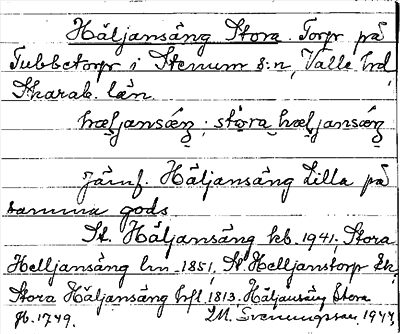 Häljansäng Stora. Torp på
Tubbetorp i Stenum s:n, Valle hd
Skarab. län.
hæljansæŋ; stora hæljansæŋ
Jämf. Häljansäng Lilla på
samma gods
St. Häljansäng kb. 1941. Stora
Helljansäng lm 1851, St Helljanstorp Ek,
Stora Häljansäng hfl. 1813. Häljansäng Stora
jb. 1749. 1943